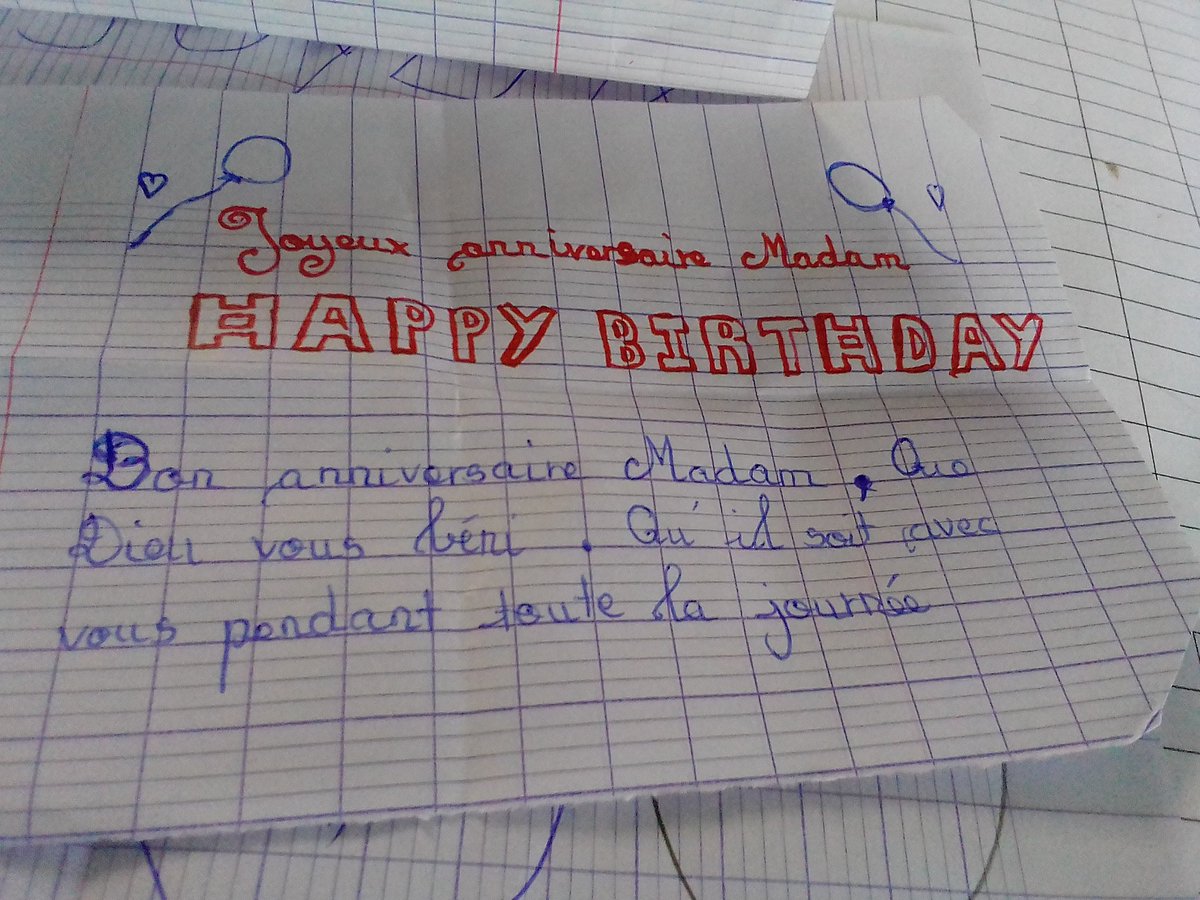 Joyeux anniversaire Madam
HAPPY BIRTHDAY
Bon anniversaire Madam, Que
Dieu vous béni. Qu'il soit avec
vous pendant toute la journée